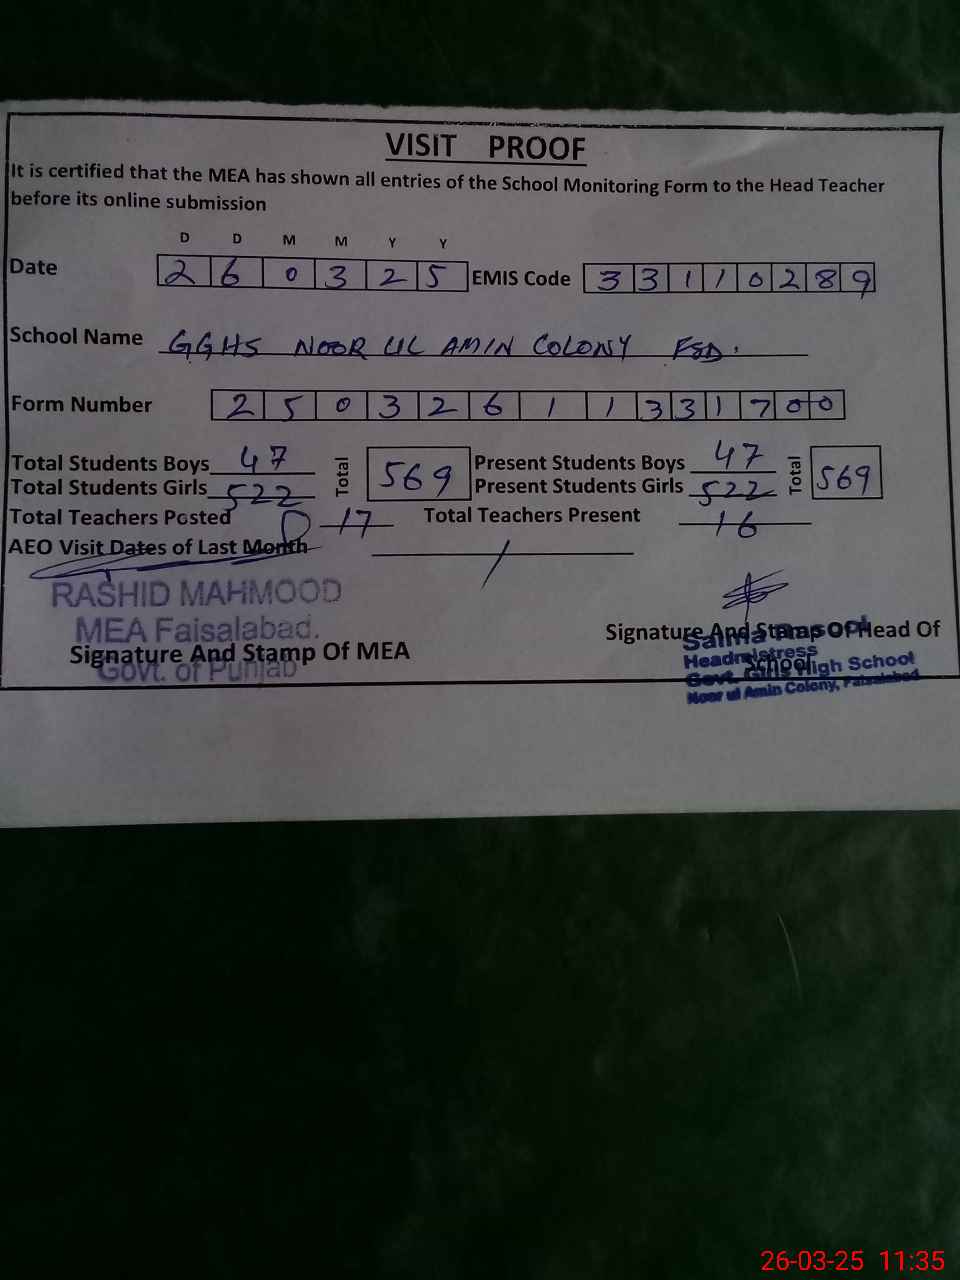 VISIT PROOF
It is certified that the MEA has shown all entries of the School Monitoring Form to the Head Teacher
before its online submission
D D M M Y Y
Date 2 6 0 3 2 5 EMIS Code 3 3 1 1 0 2 8 9
School Name GGHS NOOR UL AMIN COLONY FSD.
Form Number 2 5 0 3 2 6 1 1 3 3 1 7 0 0
Total Students Boys 47 Total 569 Present Students Boys 47 Total 569
Total Students Girls 522 Present Students Girls 522
Total Teachers Posted 17 Total Teachers Present 16
AEO Visit Dates of Last Month /
RASHID MAHMOOD
MEA Faisalabad.
Signature And Stamp Of MEA
Govt. of Punjab
Signature And Stamp Of Head Of
School
Salma
Headmistress
Govt. Girls High School
Noor ul Amin Colony, Faisalabad
26-03-25 11:35